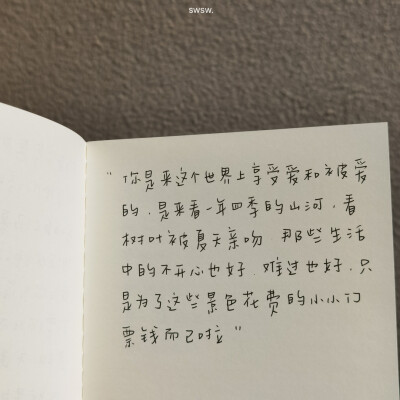 swsw.
“你是来这个世界上享受爱和被爱
的，是来看一年四季的山河，看
树叶被夏天亲吻 那些生活
中的不开心也好 难过也好，只
是为了这些景色花费的小小订
票钱而已啦”